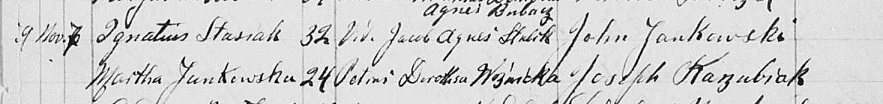 Agnes
9 Nov. 7 Ignatius Stasiak 32 Vid. Jacob Agnes Stalik John Jankowski
Martha Jankowska 24 Petrus Dorothea Wojnicka Joseph Kazubiak